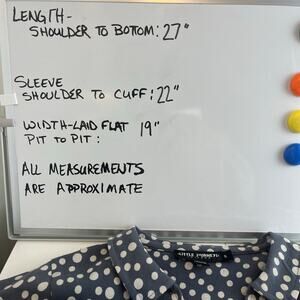 LENGTH-
SHOULDER TO BOTTOM: 27"
SLEEVE
SHOULDER TO CUFF: 22"
WIDTH-LAID FLAT 19"
PIT TO PIT:
ALL MEASUREMENTS
ARE APPROXIMATE